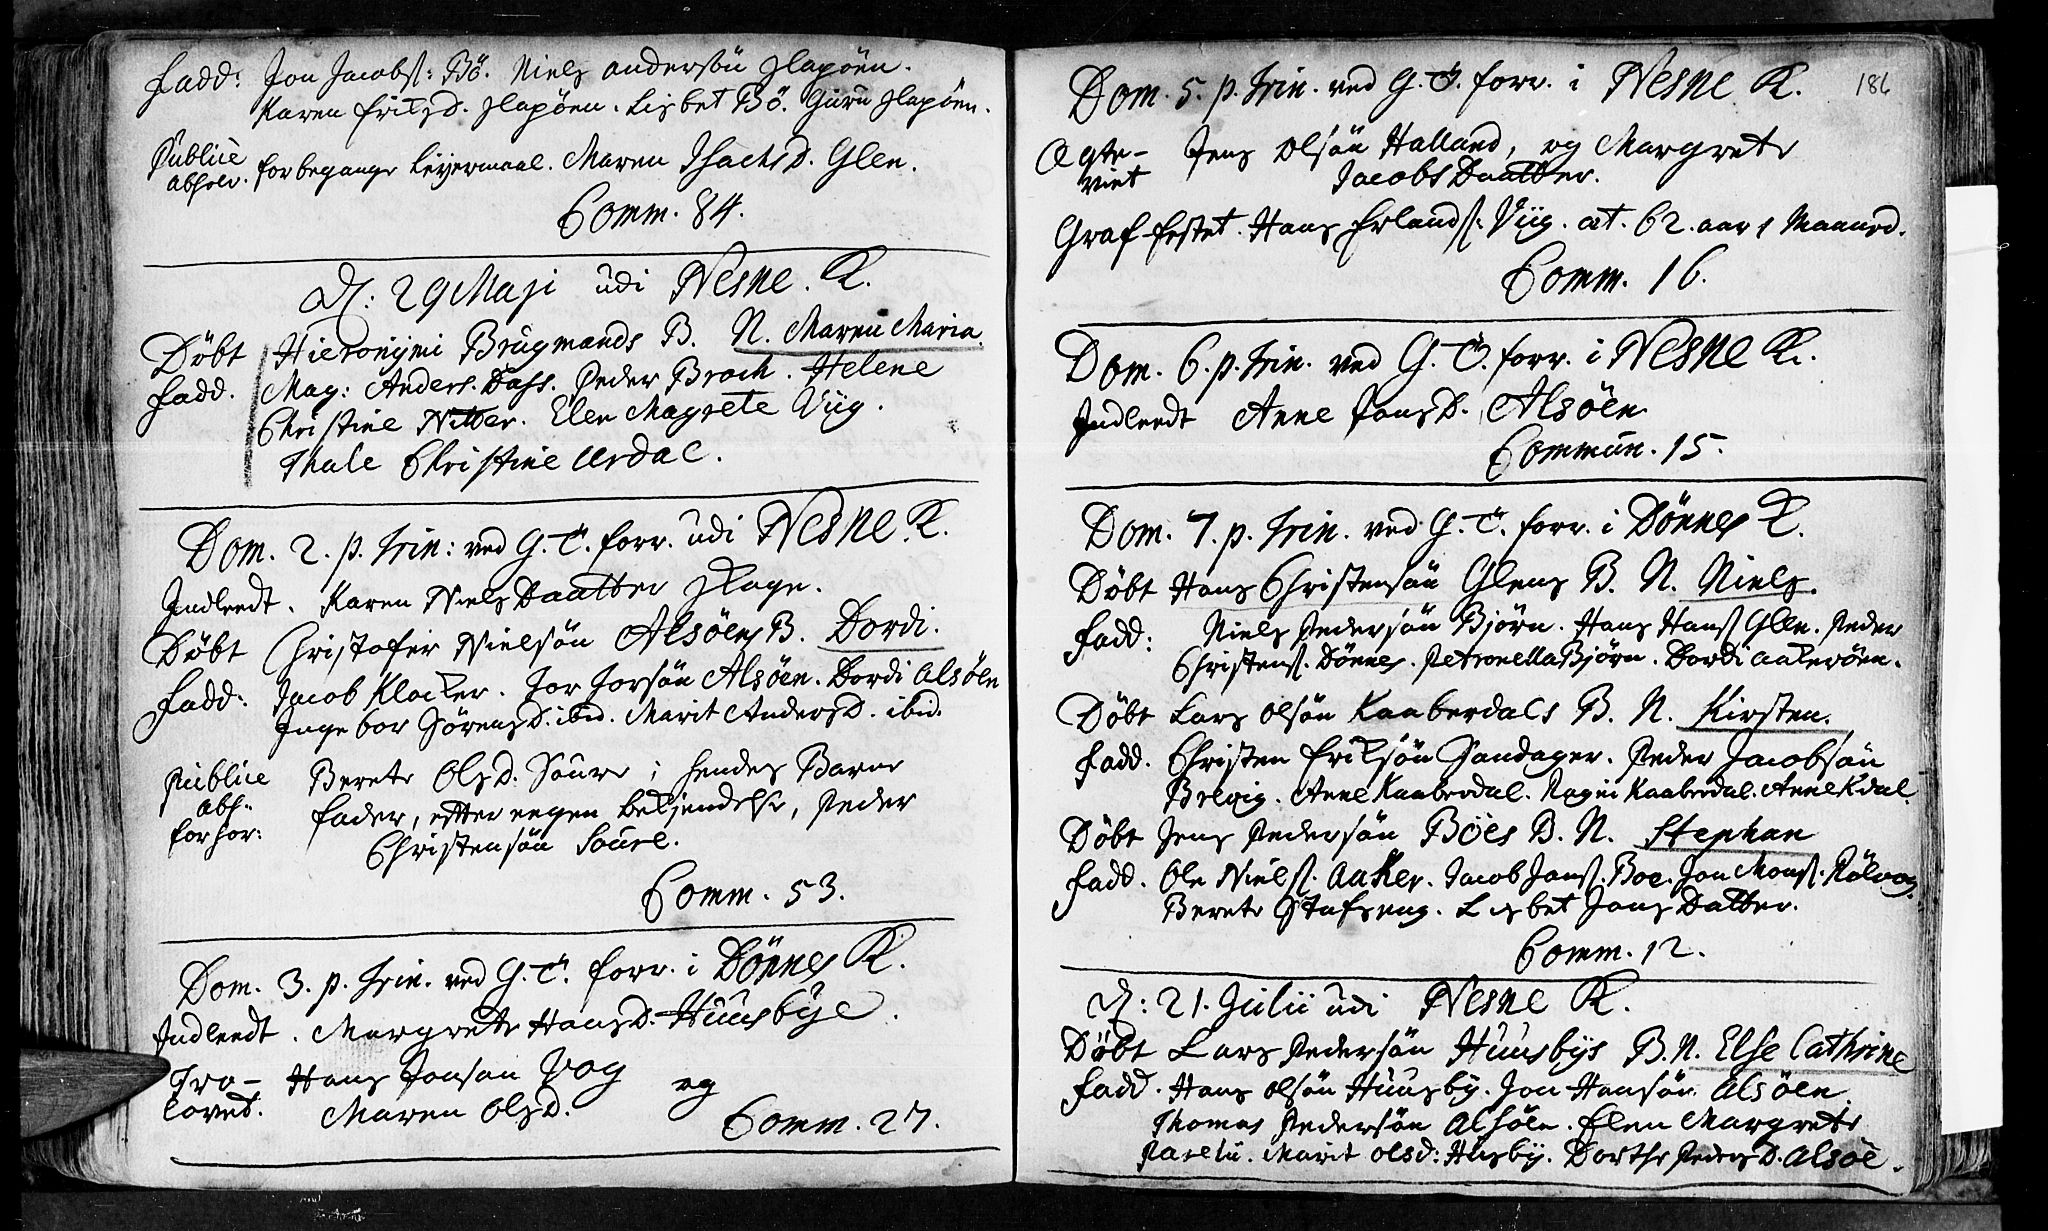 Fadd: Jon Jacobs: Bö. Niels Andersön Hapöen.
Karen Friksd. Hapöen. Lisbet Bö. Guru Hapöen.
Publice absolv. for begangne Leyermaal. Maren Isachsd. Glen.
Comm. 84.
d: 29 Maji udi Nesne. K.
Döbt Hieronymi Brugmands B. N. Maren Maria.
Fadd. Mag: Anders Dass. Peder Broch. Helene
Christine Nitter. Elen Magrete Viig.
Thale Christine Urdal.
Dom. 2. p. Trin: ved G. T. forr. udi Nesne K.
Indleedt. Karen Niels Daatter Hage.
Döbt Christofer Nielsön Alsöens B. Dordi.
Fadd: Jacob Klocker. Jor Jorsön Alsöen. Dordi Alsöen
Ingebor Sörensd. ibid. Marit Andersd. ibid.
Publice Berete Olsd. Soure; hendes Barne
abs. fader, efter egen bekjendelse, Peder
for hor: Christensön Soure.
Comm. 53.
Dom. 3. p. Trin. ved G. T. forr. i Dönnes K.
Indleedt. Margrete Hansd. Huusbye.
Tro- Hans Jonson Vog og
lovet. Maren Olsd.
Comm. 27.
186
Dom. 5. p. Trin. ved G. T. forr. i Nesne K.
Ægte- Jens Olsön Halland, og Margrete
viet Jacobs Daatter.
Graf-festet. Hans Erlands. Viig. æt. 62. aar 1 Maaned.
Comm. 16.
Dom. 6. p. Trin. ved G. T. forr. i Nesne K.
Indleedt Anne Jonsd. Alsöen.
Commun. 15.
Dom. 7. p. Trin. ved G. T. forr. i Dönnes K.
Döbt Hans Christensön Glens B. N. Niels.
Fadd: Niels Pedersön Björn. Hans Hans. Glen. Peder
Christens. Dönnes. Petronella Björn. Dordi Aakeröen.
Döbt Lars Olsön Kaaberdals B. N. Kirsten.
Fadd. Christen Friksön Sandager. Peder Jacobsön
Brevig. Anne Kaaberdal. Ragni Kaaberdal. Anne Kdal.
Döbt Jens Pedersön Böes B. N. Stephan
Fadd. Ole Niels. Aaker. Jacob Jans. Boe. Jon Mons. Rölvog.
Berete Stafseng. Lisbet Jons Datter.
Comm. 12.
d: 21. Julii udi Nesne K.
Döbt Lars Pedersön Huusbys B. N. Else Cathrine
Fadd. Hans Olsön Huusby. Jon Hansön Alsöen.
Thomas Pedersön Alsöen. Elen Margrete
Parelii. Marit Olsd: Husby. Dorthe Pedersd. Alsöe.